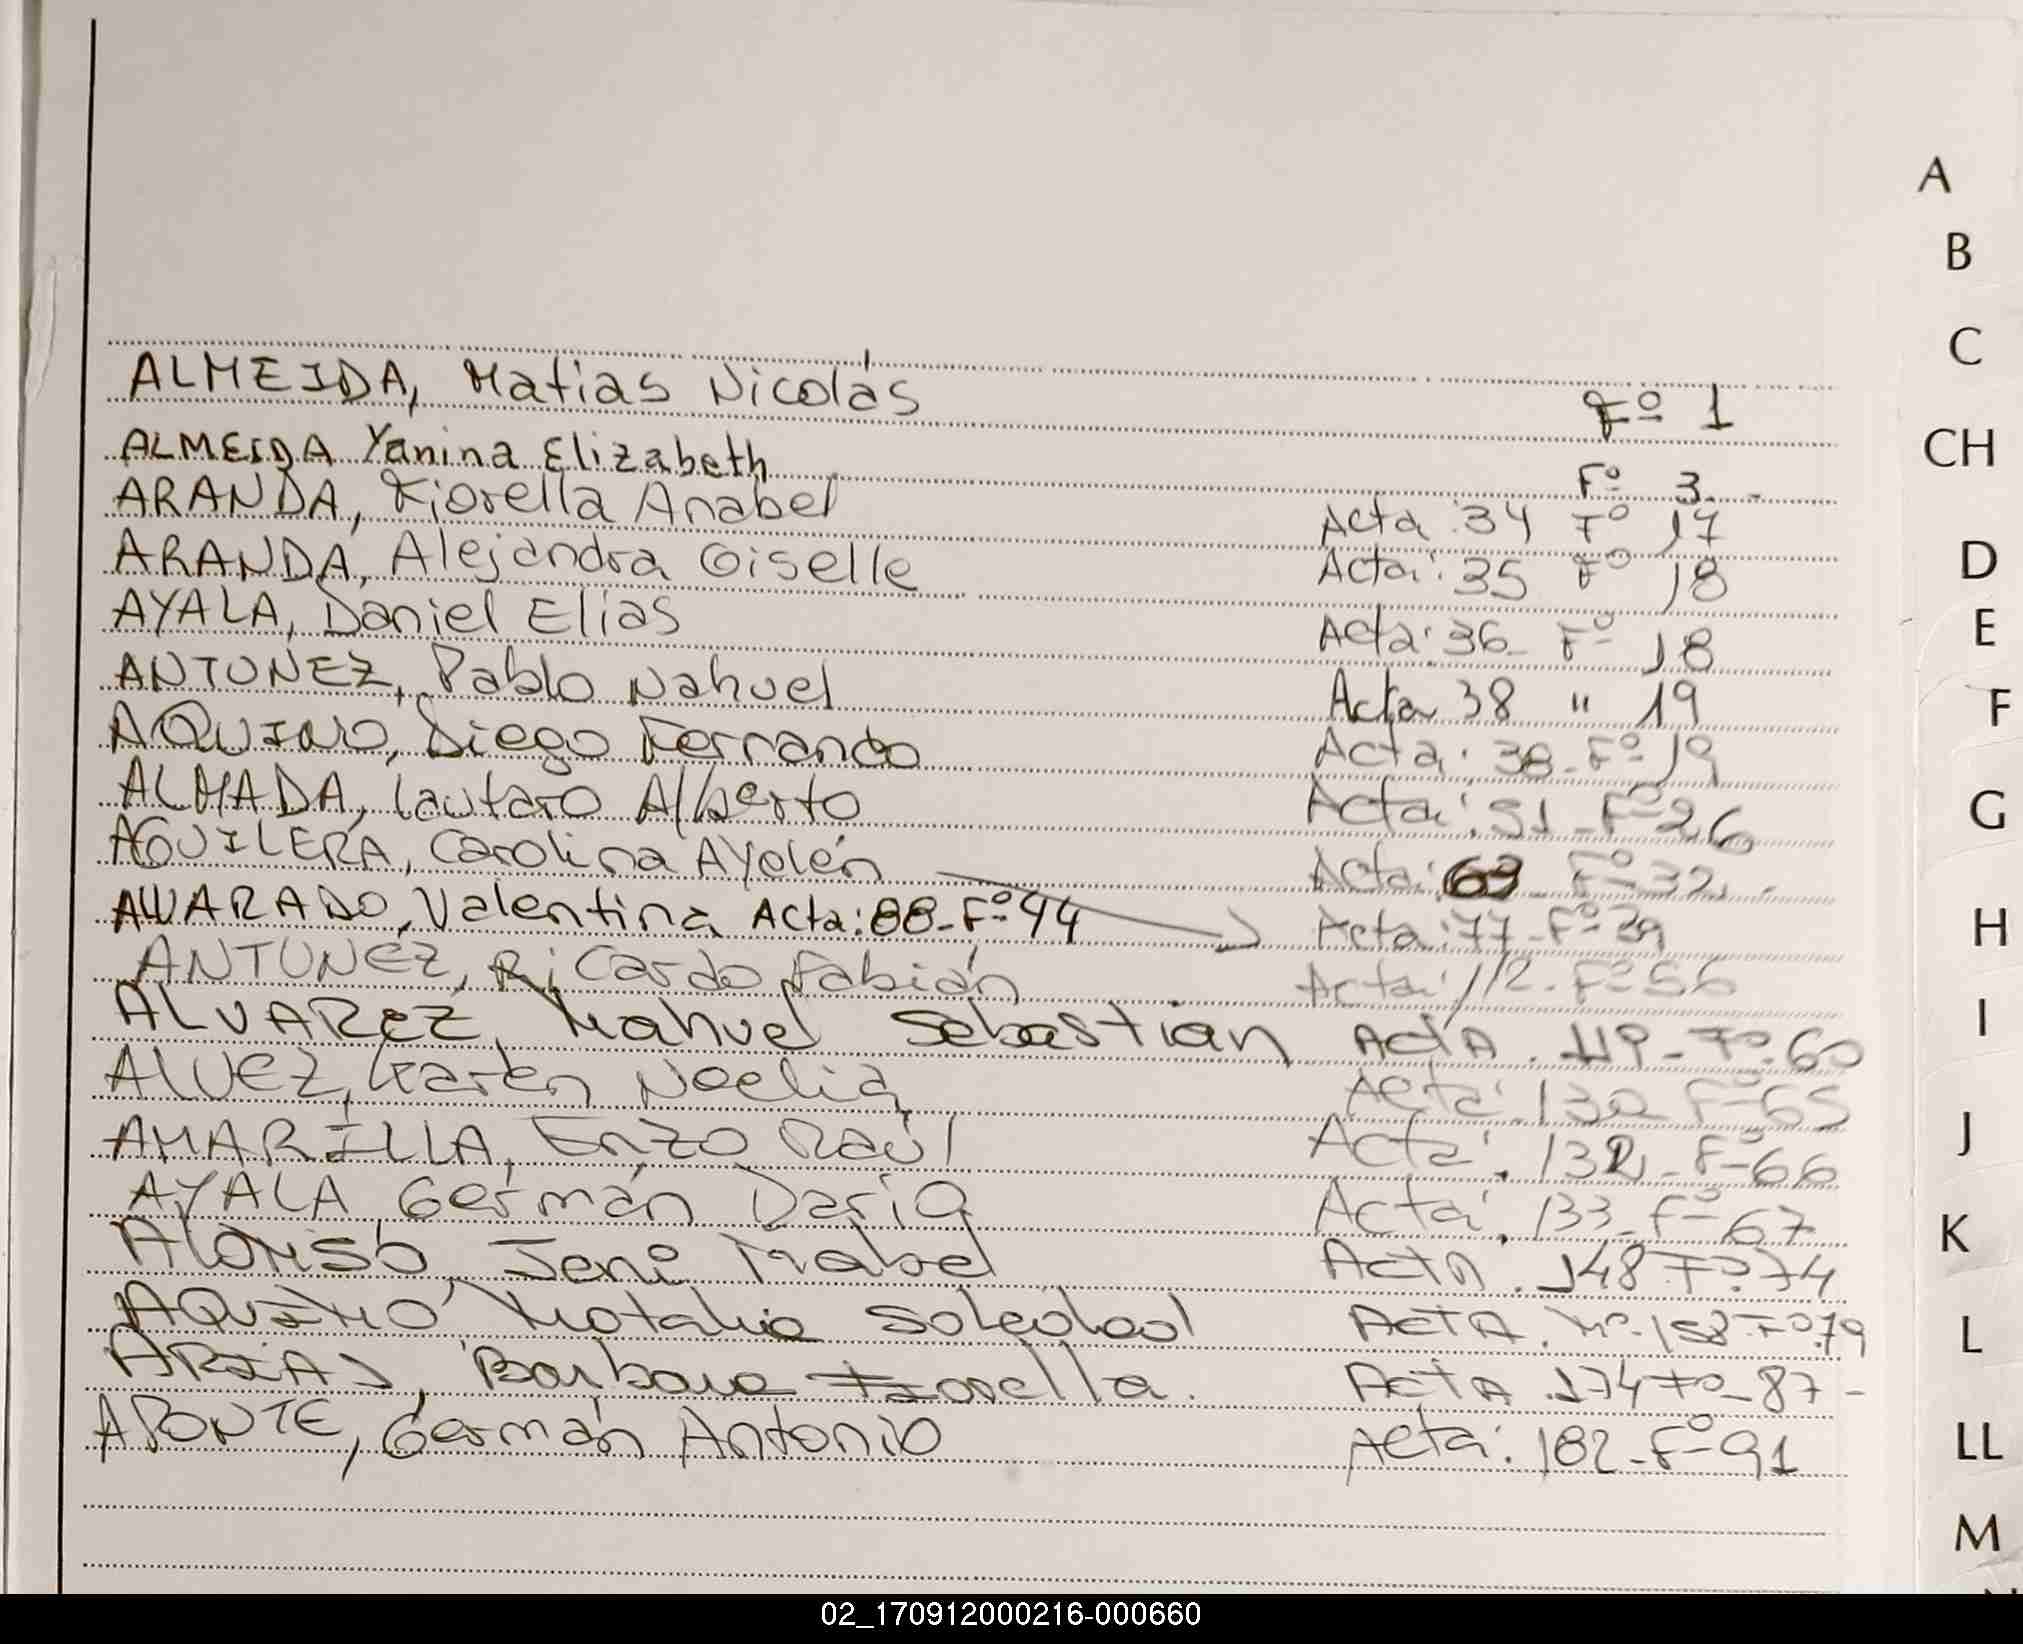 ALMEIDA, Matias Nicolás Fº 1
ALMEIDA Yanina Elizabeth Fº 3.-
ARANDA, Fiorella Anabel Acta: 34 Fº 17
ARANDA, Alejandra Giselle Acta: 35 Fº 18
AYALA, Daniel Elias Acta: 36- Fº 18
ANTUNEZ, Pablo Nahuel Acta 38 " 19
AQUINO, Diego Fernando Acta: 38-Fº 19
ALMADA, Lautaro Alberto Acta: 51-Fº 26
AGUILERA, Carolina Ayelén Acta: 63-Fº 32.-
ALVARADO, Valentina Acta: 88-Fº 44 Acta: 77-Fº 39
ANTUNEZ, Ricardo Fabián Acta: 112-Fº 56
ALVAREZ, Nahuel Sebastian ActA. 119-Fº 60
AlVEZ, Karen Noelia Acta: 130 Fº 65
AMARILLA, Enzo Raúl Acta: 132-Fº 66
AYALA Germán Dario Acta: 133-Fº 67
Alonso, Jeni Mabel ActA. 148 Fº 74
AQUINO Natalia Soledad ActA. Nº 158-Fº 79
ARIAS, Barbara Fiorella. ActA. 174 Fº-87-
APONTE, Germán Antonio Acta: 182-Fº 91
A
B
C
CH
D
E
F
G
H
I
J
K
L
LL
M
02_170912000216-000660